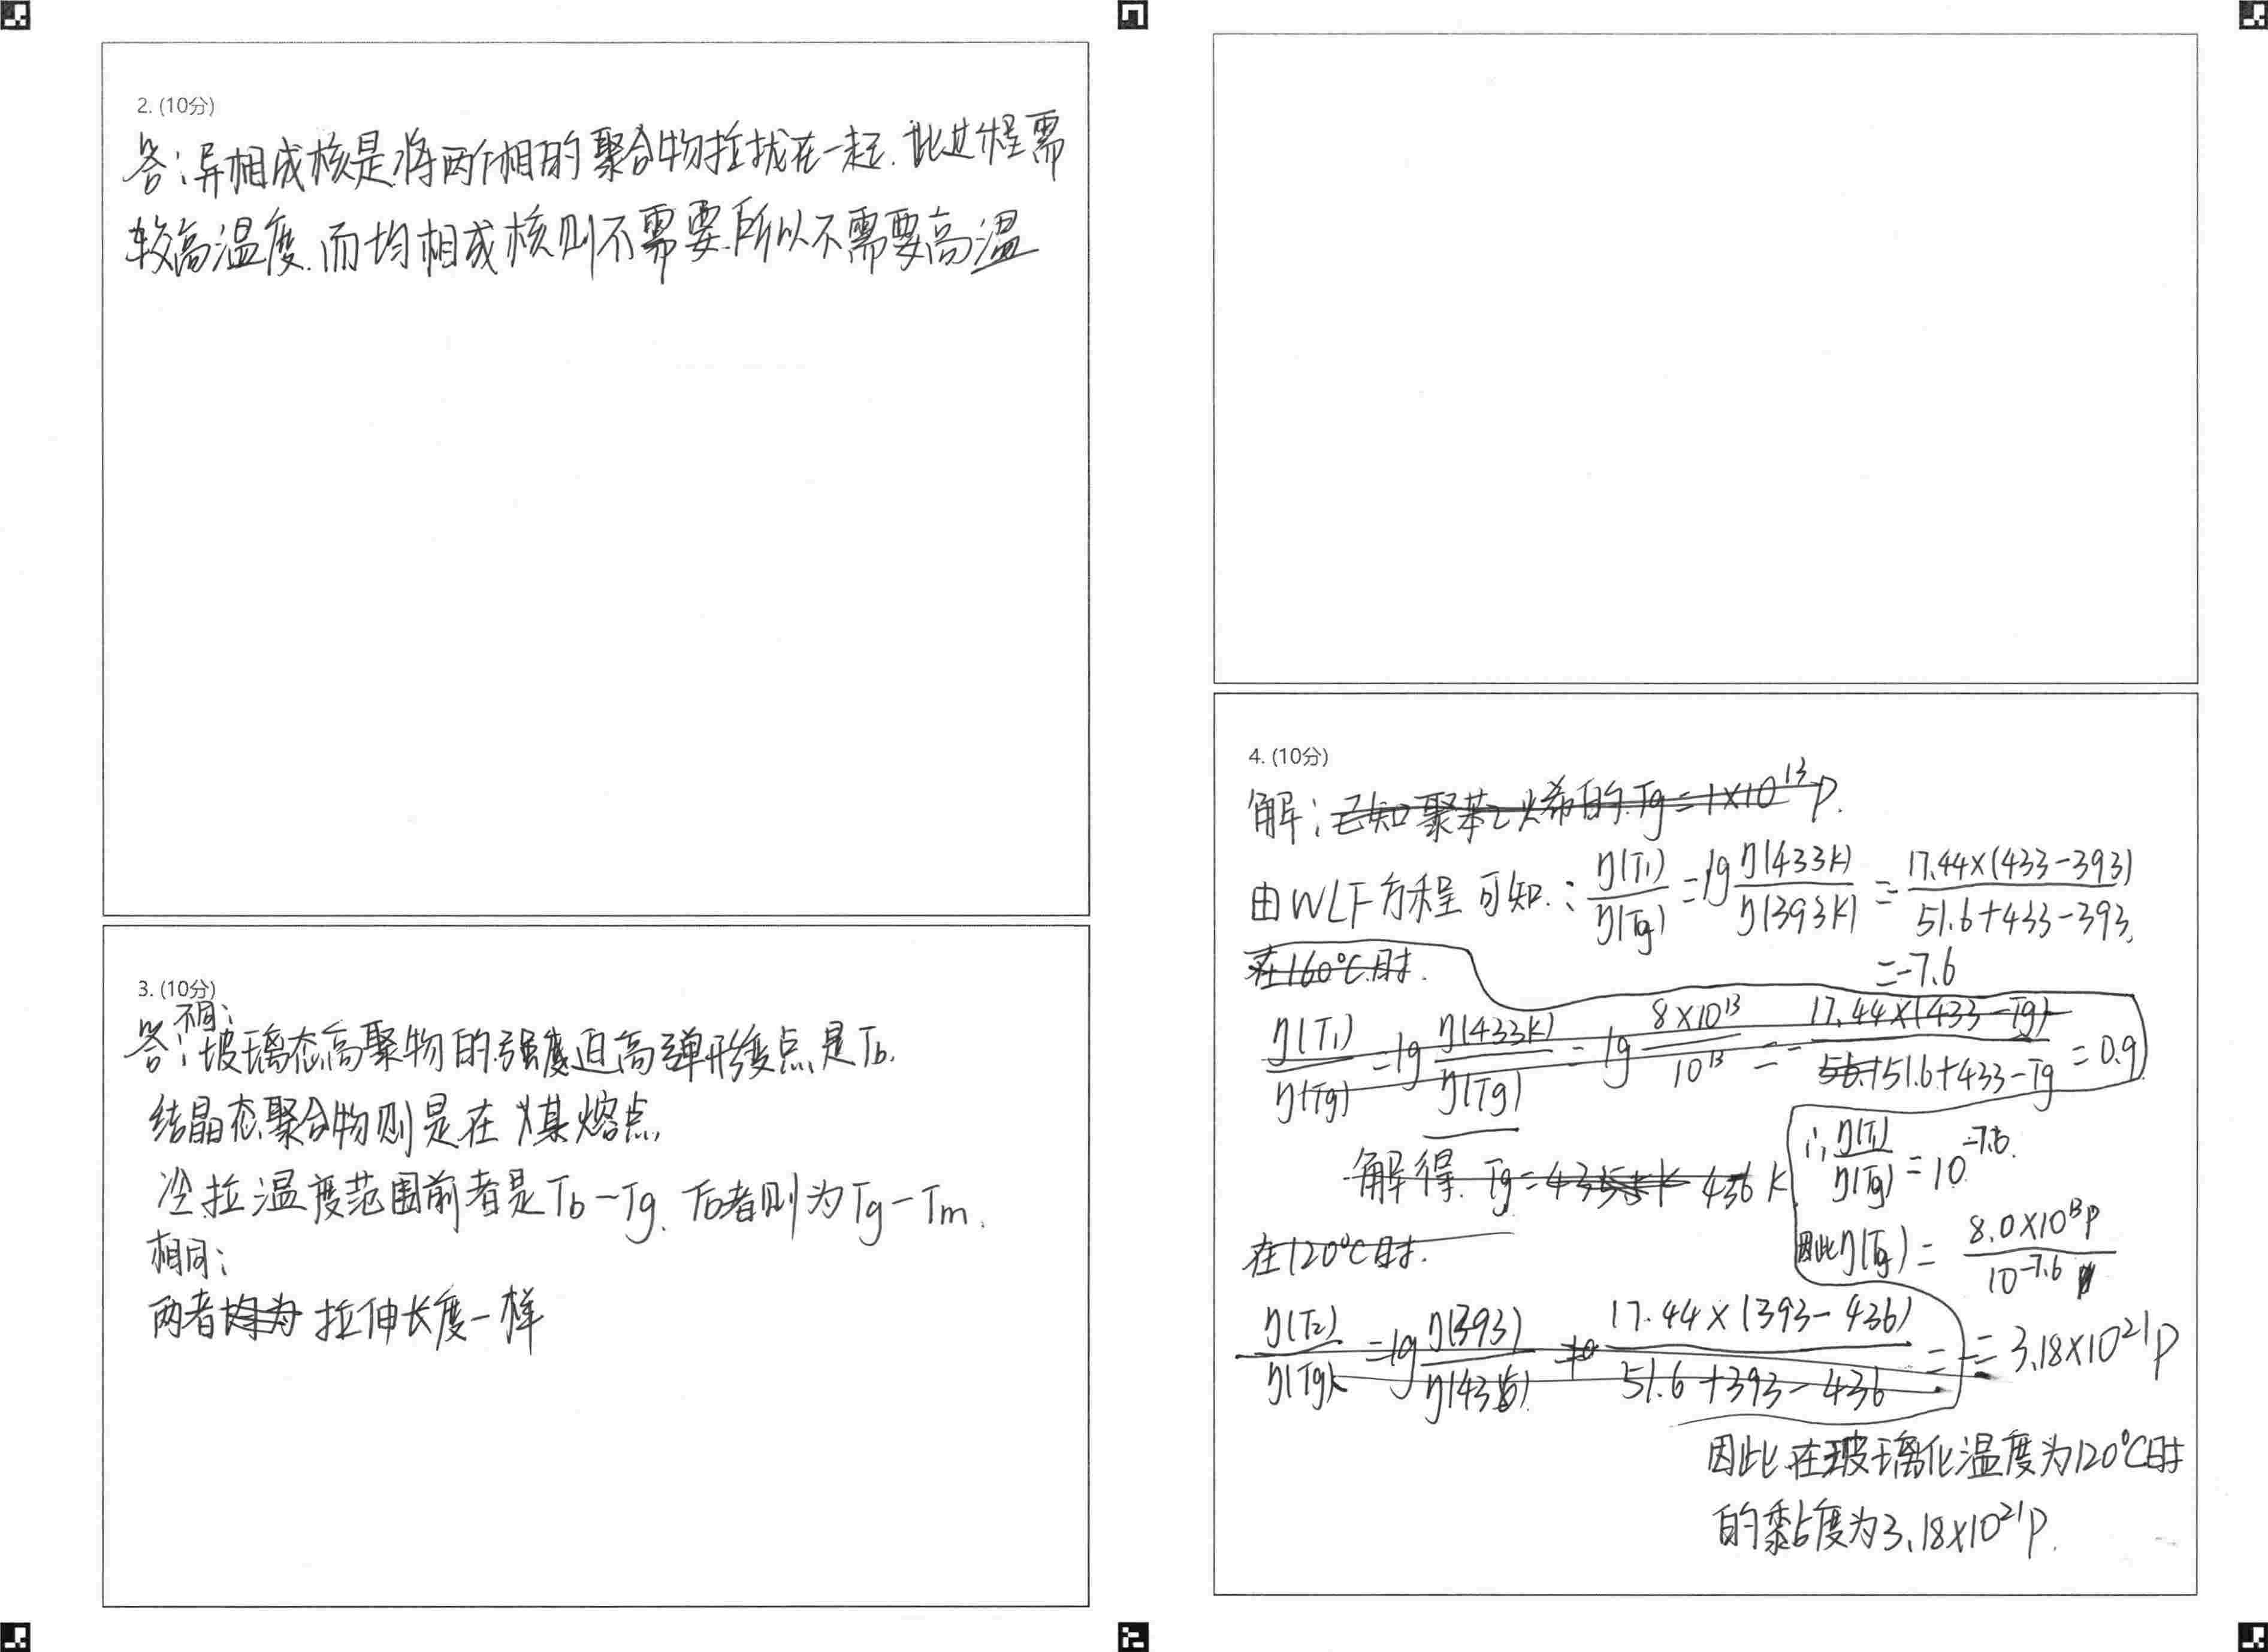 2. (10分)
答:异相成核是将两个相的聚合物拉拢在一起.此过程需
较高温度.而均相成核则不需要.所以不需要高温
3. (10分)
不同:
答:玻璃态高聚物的强迫高弹形变点是Tb.
结晶态聚合物则是在某熔点
冷拉温度范围前者是Tb~Tg.后者则为Tg-Tm.
相同:
两者均为拉伸长度一样
4. (10分)
解:已知聚苯乙烯的Tg=1×10¹³P.
由WLF方程可知.:η(T₁)/η(Tg)=lg η(433K)/η(393K)=17.44×(433-393)/51.6+433-393
在160℃时.
=-7.6
η(T₁)/η(Tg)=lg η(433K)/η(Tg)=lg 8×10¹³/10¹³=-17.44×(433-Tg)/51.6+433-Tg=0.9
∴η(T₁)/η(Tg)=10^-7.6
解得.Tg= 436K
因此η(Tg)=8.0×10¹³P/10^-7.6
在120℃时.
η(T₂)/η(Tg)=lg η(393)/η(436)=17.44×(393-436)/51.6+393-436=
=3.18×10²¹P
因此在玻璃化温度为120℃时
的黏度为3.18×10²¹P.